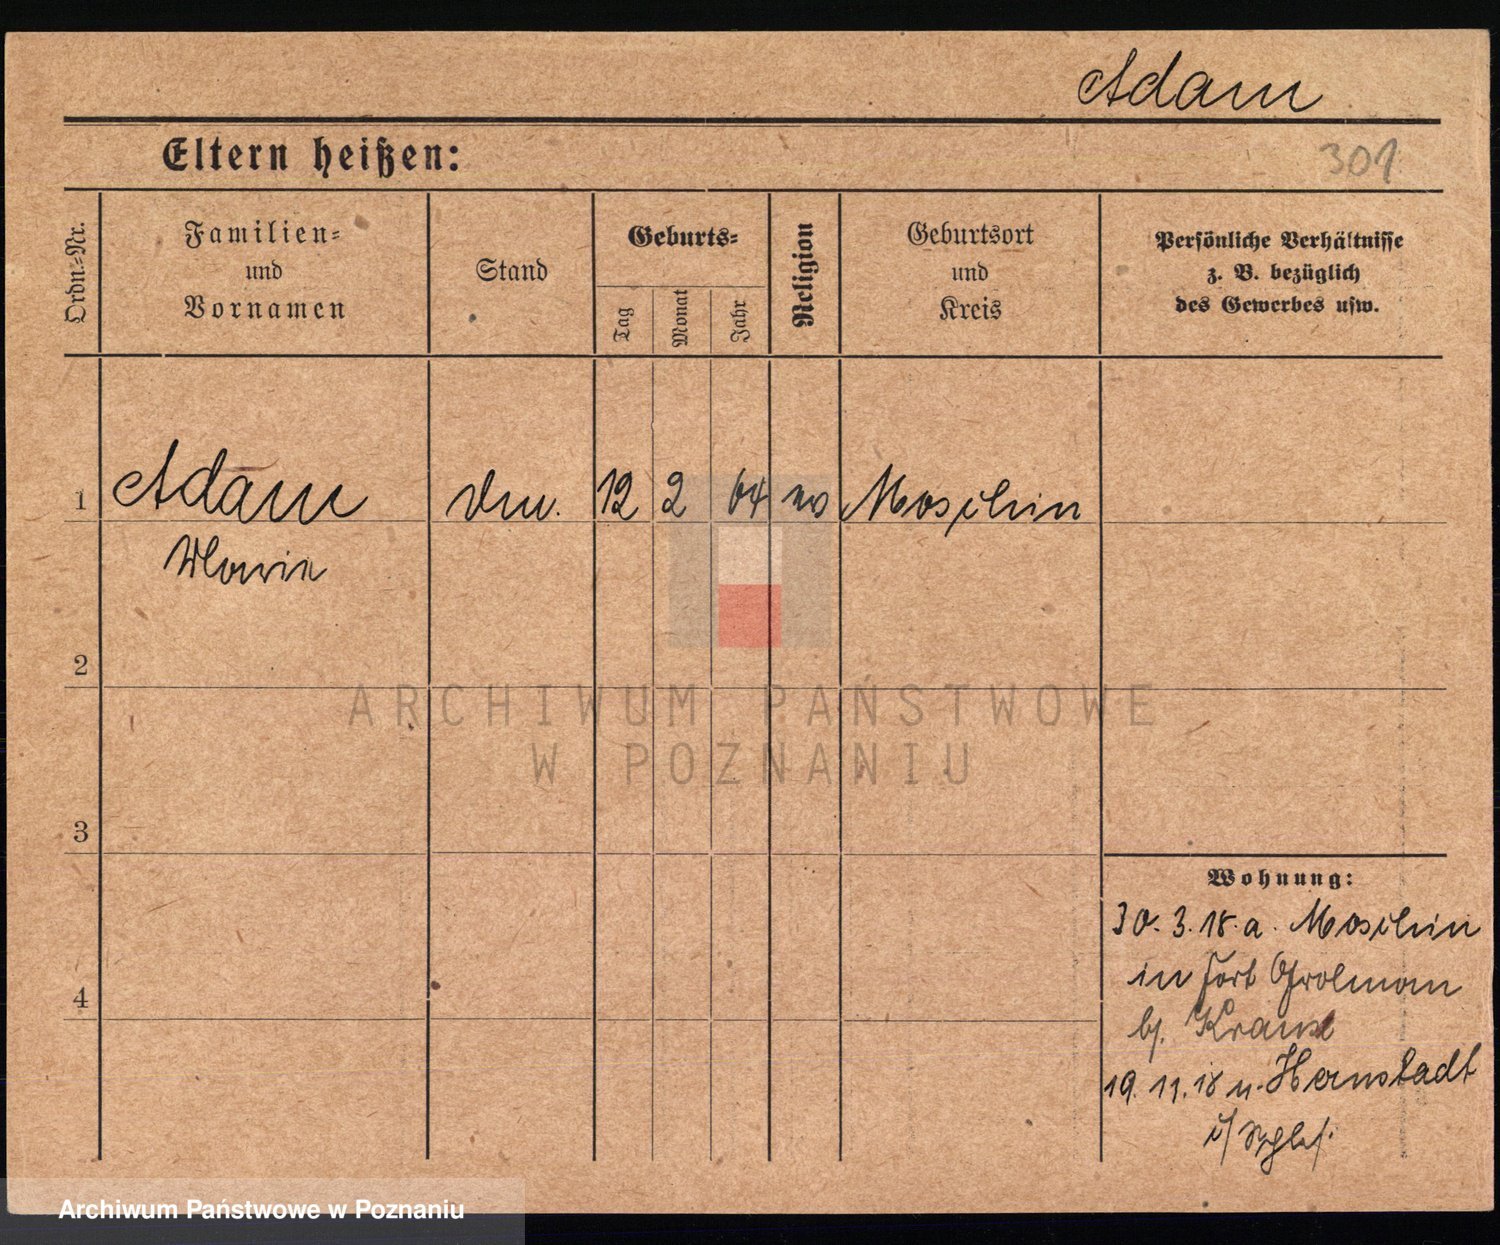 Adam
Eltern heißen:
301
Ordn.-Nr.
Familien-
und
Vornamen
Stand
Geburts-
Tag
Monat
Jahr
Religion
Geburtsort
und
Kreis
Persönliche Verhältnisse
z. B. bezüglich
des Gewerbes usw.
1
Adam
12
2
64
Moschin
Marie
2
ARCHIWUM PAŃSTWOWE
W POZNANIU
3
Wohnung:
30. 3. 18. a. Moschin
in Fort Grolman
b/. Krause
4
19. 11. 18 n. Hernstadt
i/ Schles.
Archiwum Państwowe w Poznaniu